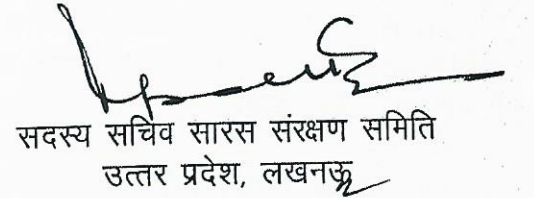 सदस्य सचिव सारस संरक्षण समिति
उत्तर प्रदेश, लखनऊ